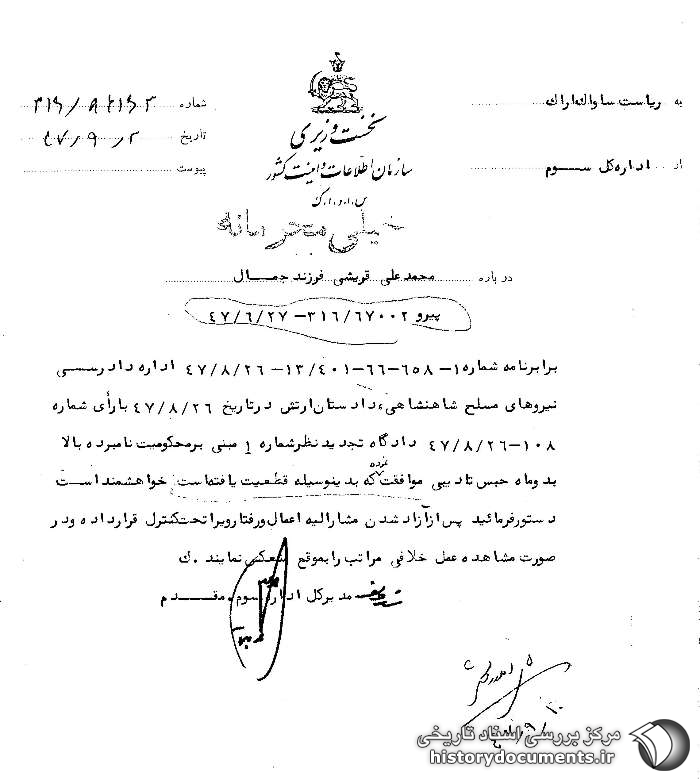 به ریاست ساواک اراک
از اداره کل سوم
نخست وزیری
سازمان اطلاعات و امنیت کشور
س.ا.و.ا.ک
شماره
تاریخ ۴۷/۹/۲
پیوست
خیلی محرمانه
درباره محمدعلی قریشی فرزند جمال
پیرو ۳۱۶/۶۷۰۰۲-۴۷/۶/۲۷
برابرنامه شماره ۱-۶۵۸-۶۶-۱۳/۴۰۱-۴۷/۸/۲۶ اداره دادرسی
نیروهای مسلح شاهنشاهی، دادستان ارتش درتاریخ ۴۷/۸/۲۶ بارأی شماره
۱۰۸-۴۷/۸/۲۶ دادگاه تجدیدنظر شماره ۱ مبنی برمحکومیت نامبرده بالا
بدوماه حبس تادیبی موافقت نموده که بدینوسیله قطعیت یافته است خواهشمند است
دستور فرمائید پس از آزاد شدن مشارالیه اعمال و رفتار ویرا تحت کنترل قرارداده و در
صورت مشاهده عمل خلافی مراتب را بموقع منعکس نمایند .ک
مدیرکل اداره سوم. مقدم
مرکز بررسی اسناد تاریخی
historydocuments.ir